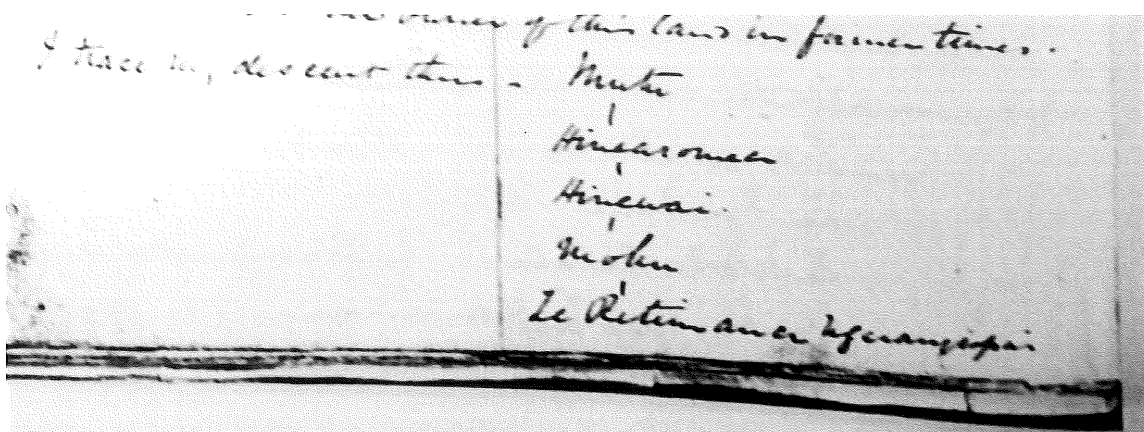 the owner of this land in former times.
I trace my descent thus - Mutu
Hinearomea
Hinewai.
Mohu
Te Retimana Ngarangipai